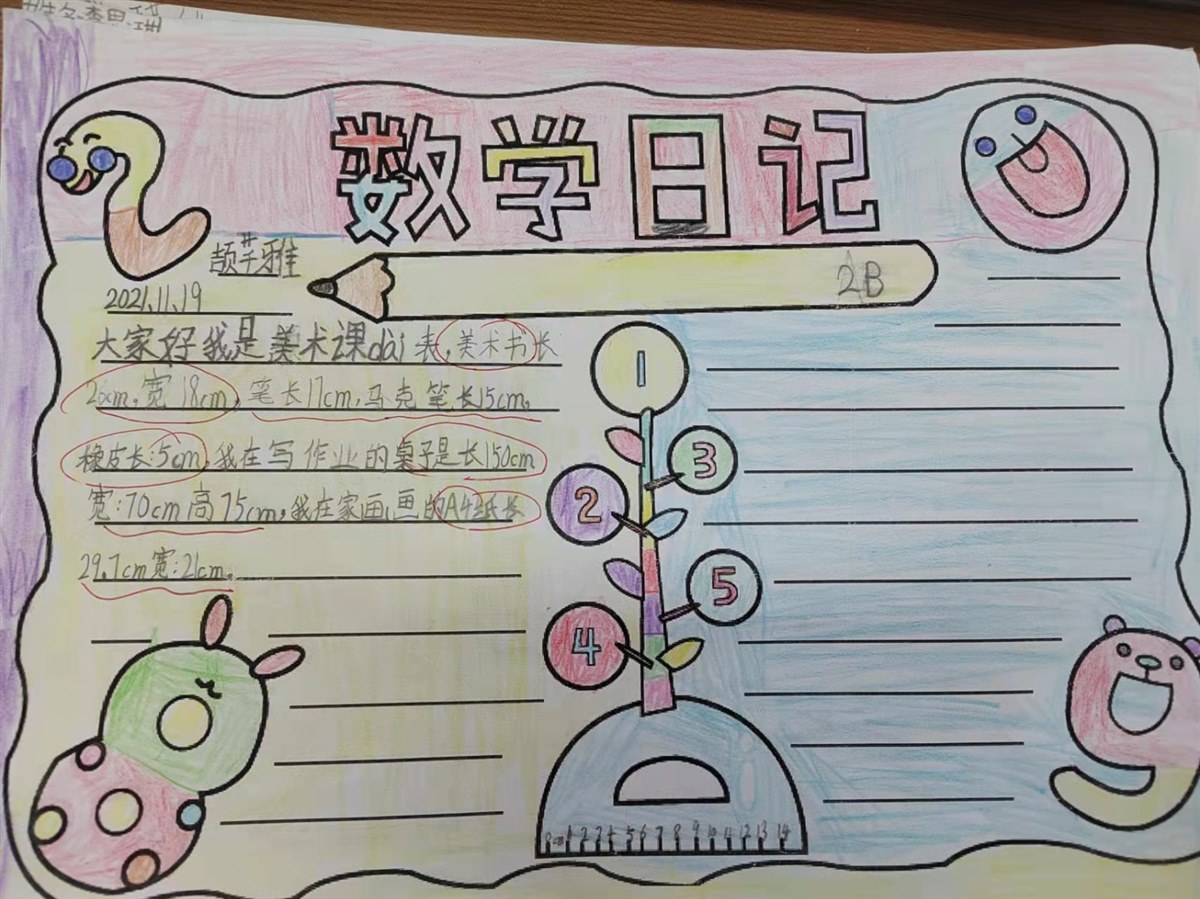 数学日记
颉芊雅
2B
2021.11.19
大家好我是美术课dài表,美术书长
26cm,宽18cm,笔长17cm,马克笔长15cm,
橡皮长:5cm,我在写作业的桌子是长150cm
宽:70cm高75cm,我在家画画的A4纸长
29.7cm宽:21cm.
1
3
2
5
4